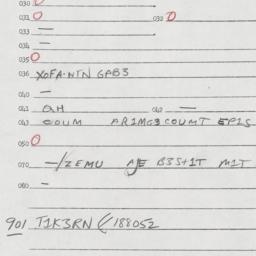 030
031 O 032 O
033 —
034 —
035 O
036 XOFA-NTN GPB3
040 —
041 QH 042 —
043 COUM AR1MG3COUMT EP1S
050 O
070 -/ZEMU AJE B3S+1T M1T
080 —
901 T1K3RN (/188052